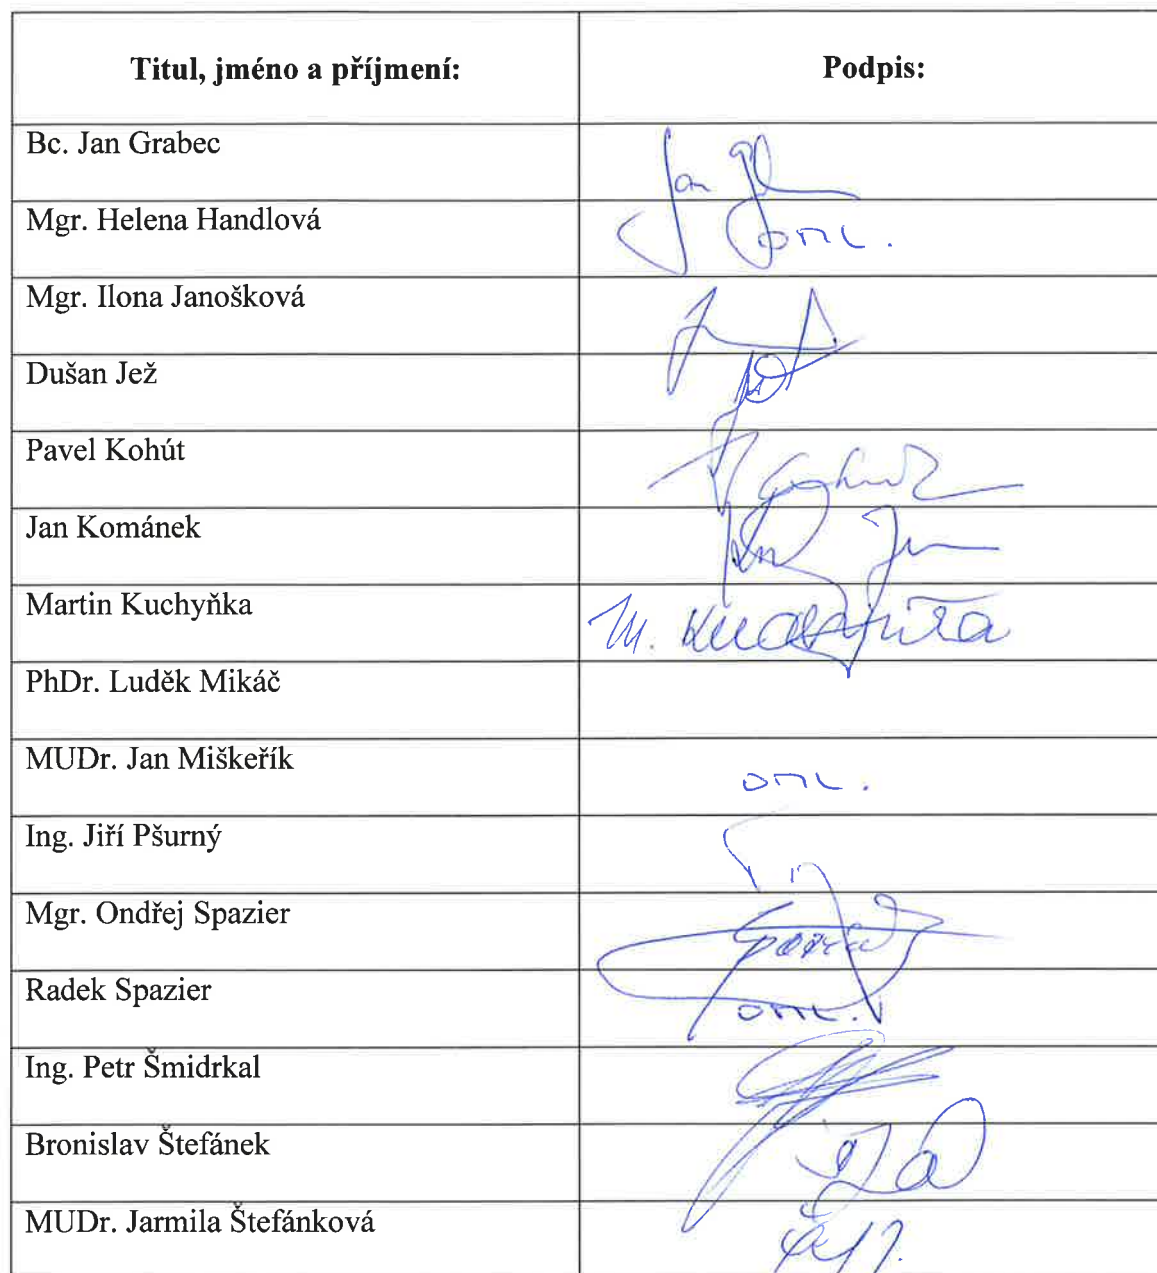 Titul, jméno a příjmení: Podpis:
Bc. Jan Grabec Jan
Mgr. Helena Handlová OML.
Mgr. Ilona Janošková
Dušan Jež
Pavel Kohút
Jan Kománek
Martin Kuchyňka M. Kuchyňka
PhDr. Luděk Mikáč
MUDr. Jan Miškeřík OML.
Ing. Jiří Pšurný
Mgr. Ondřej Spazier
Radek Spazier OML.
Ing. Petr Šmidrkal
Bronislav Štefánek
MUDr. Jarmila Štefánková